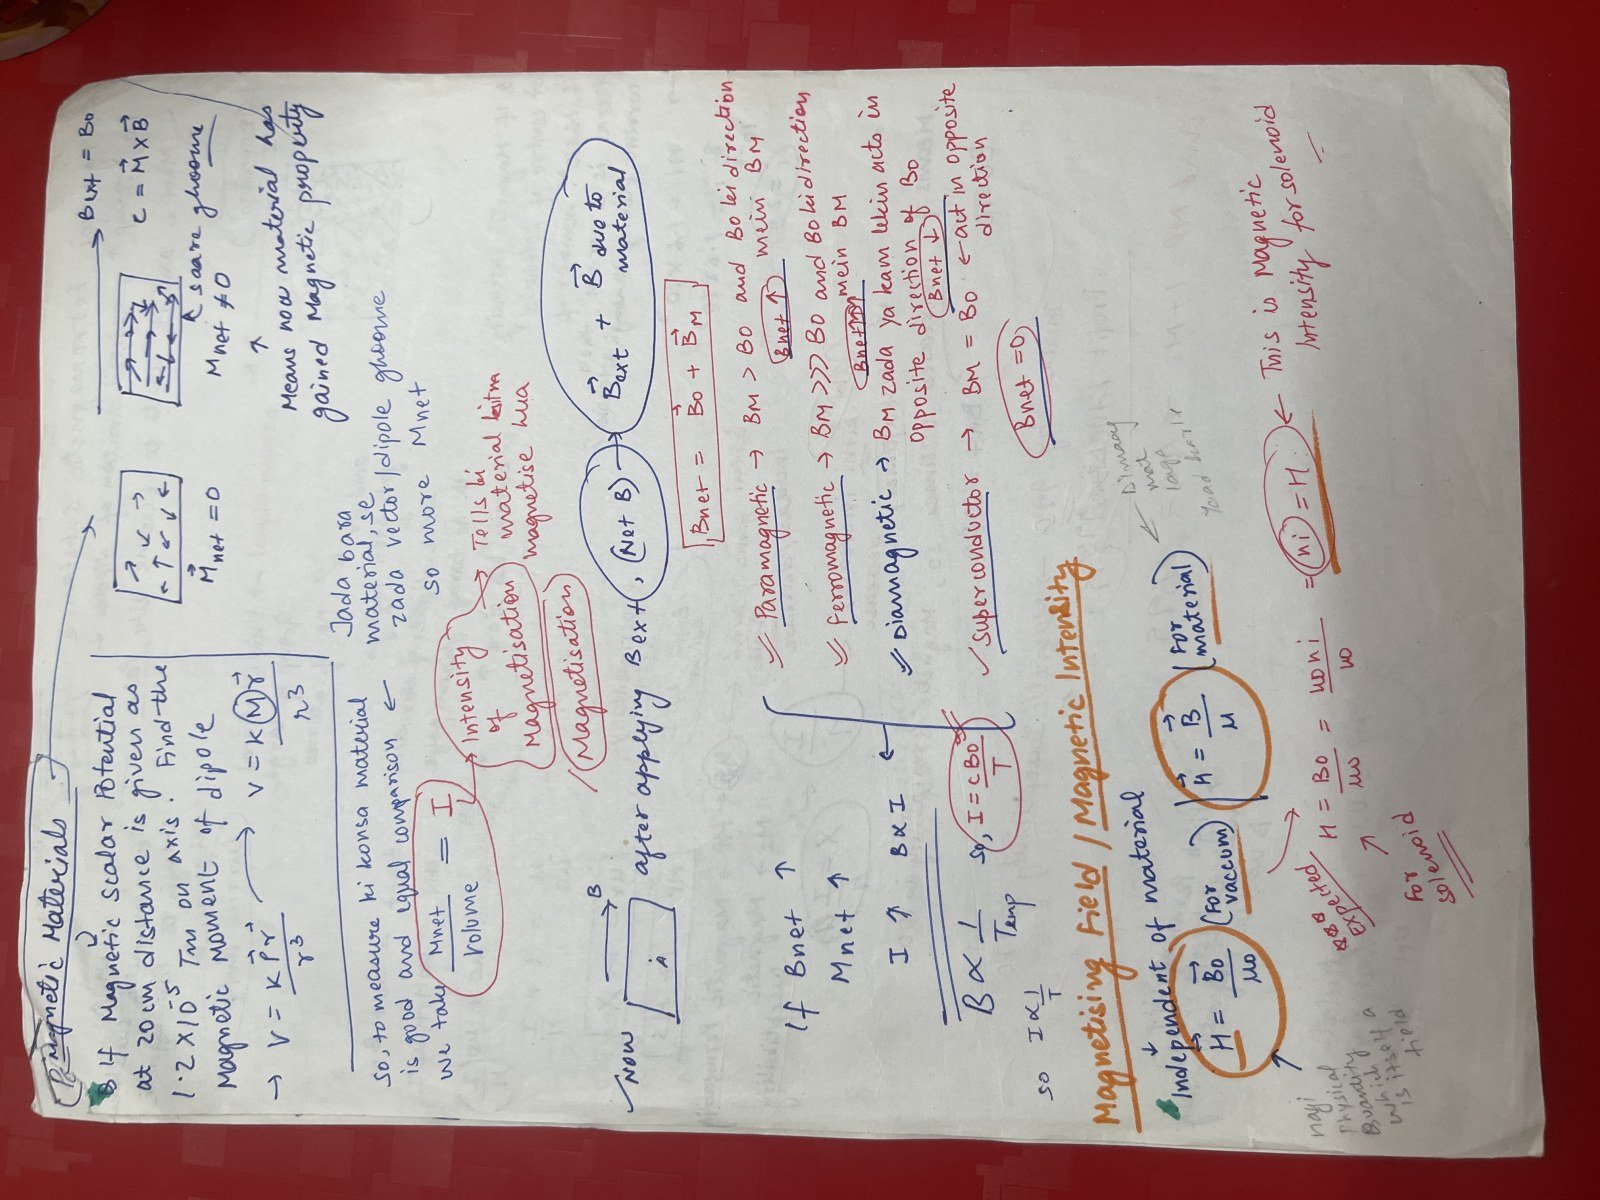 Magnetic Materials
B If Magnetic Scalar Potential
at 20cm distance is given as
1.2 × 10⁻⁵ Tm on axis. Find the
Magnetic Moment of dipole
→ V = K P⃗ r⃗ / r³ → V = K M⃗ r⃗ / r³
M⃗net = 0
→ Bext = B₀
τ = M⃗ × B⃗
saare ghoome
Mnet ≠ 0
↑
Means now material has
gained Magnetic property
Jada bara
material, se
zada vector/dipole ghoome
so more Mnet
so, to measure ki konsa material
is good and equal comparison ←
we take Mnet / Volume = I
→ Intensity
of
Magnetisation
→ Tells ki
material kitna
magnetise hua
/ Magnetisation
✓ NOW
→ B
after applying Bext, (Net B) → B⃗ext + B⃗ due to
material
Bnet = B⃗₀ + B⃗M
If Bnet ↑
Mnet ↑
I ↑ B ∝ I ←
B ∝ 1 / Temp
so, I = C B₀ / T
so I ∝ 1/T
✓ Paramagnetic → BM > B₀ and B₀ ki direction
mein BM
Bnet ↑
✓ Ferromagnetic → BM >>> B₀ and B₀ ki direction
mein BM
Bnet ↑↑↑
✓ Diamagnetic → BM zada ya kam lekin acts in
opposite direction of B₀
Bnet ↓
✓ Superconductor → BM = B₀ ← act in opposite
direction
Bnet = 0
Magnetising Field / Magnetic Intensity
Independent of material
H⃗ = B⃗₀ / μ₀ (For
vaccum)
H⃗ = B⃗ / μ (For
material)
← Dimaag
mat
yaad karle
Physical
Quantity
which a
is itself
field
expected
H = B₀ / μ₀ = μ₀ni / μ₀ = ni = H. ← This is Magnetic
Intensity for solenoid
↑
For
solenoid